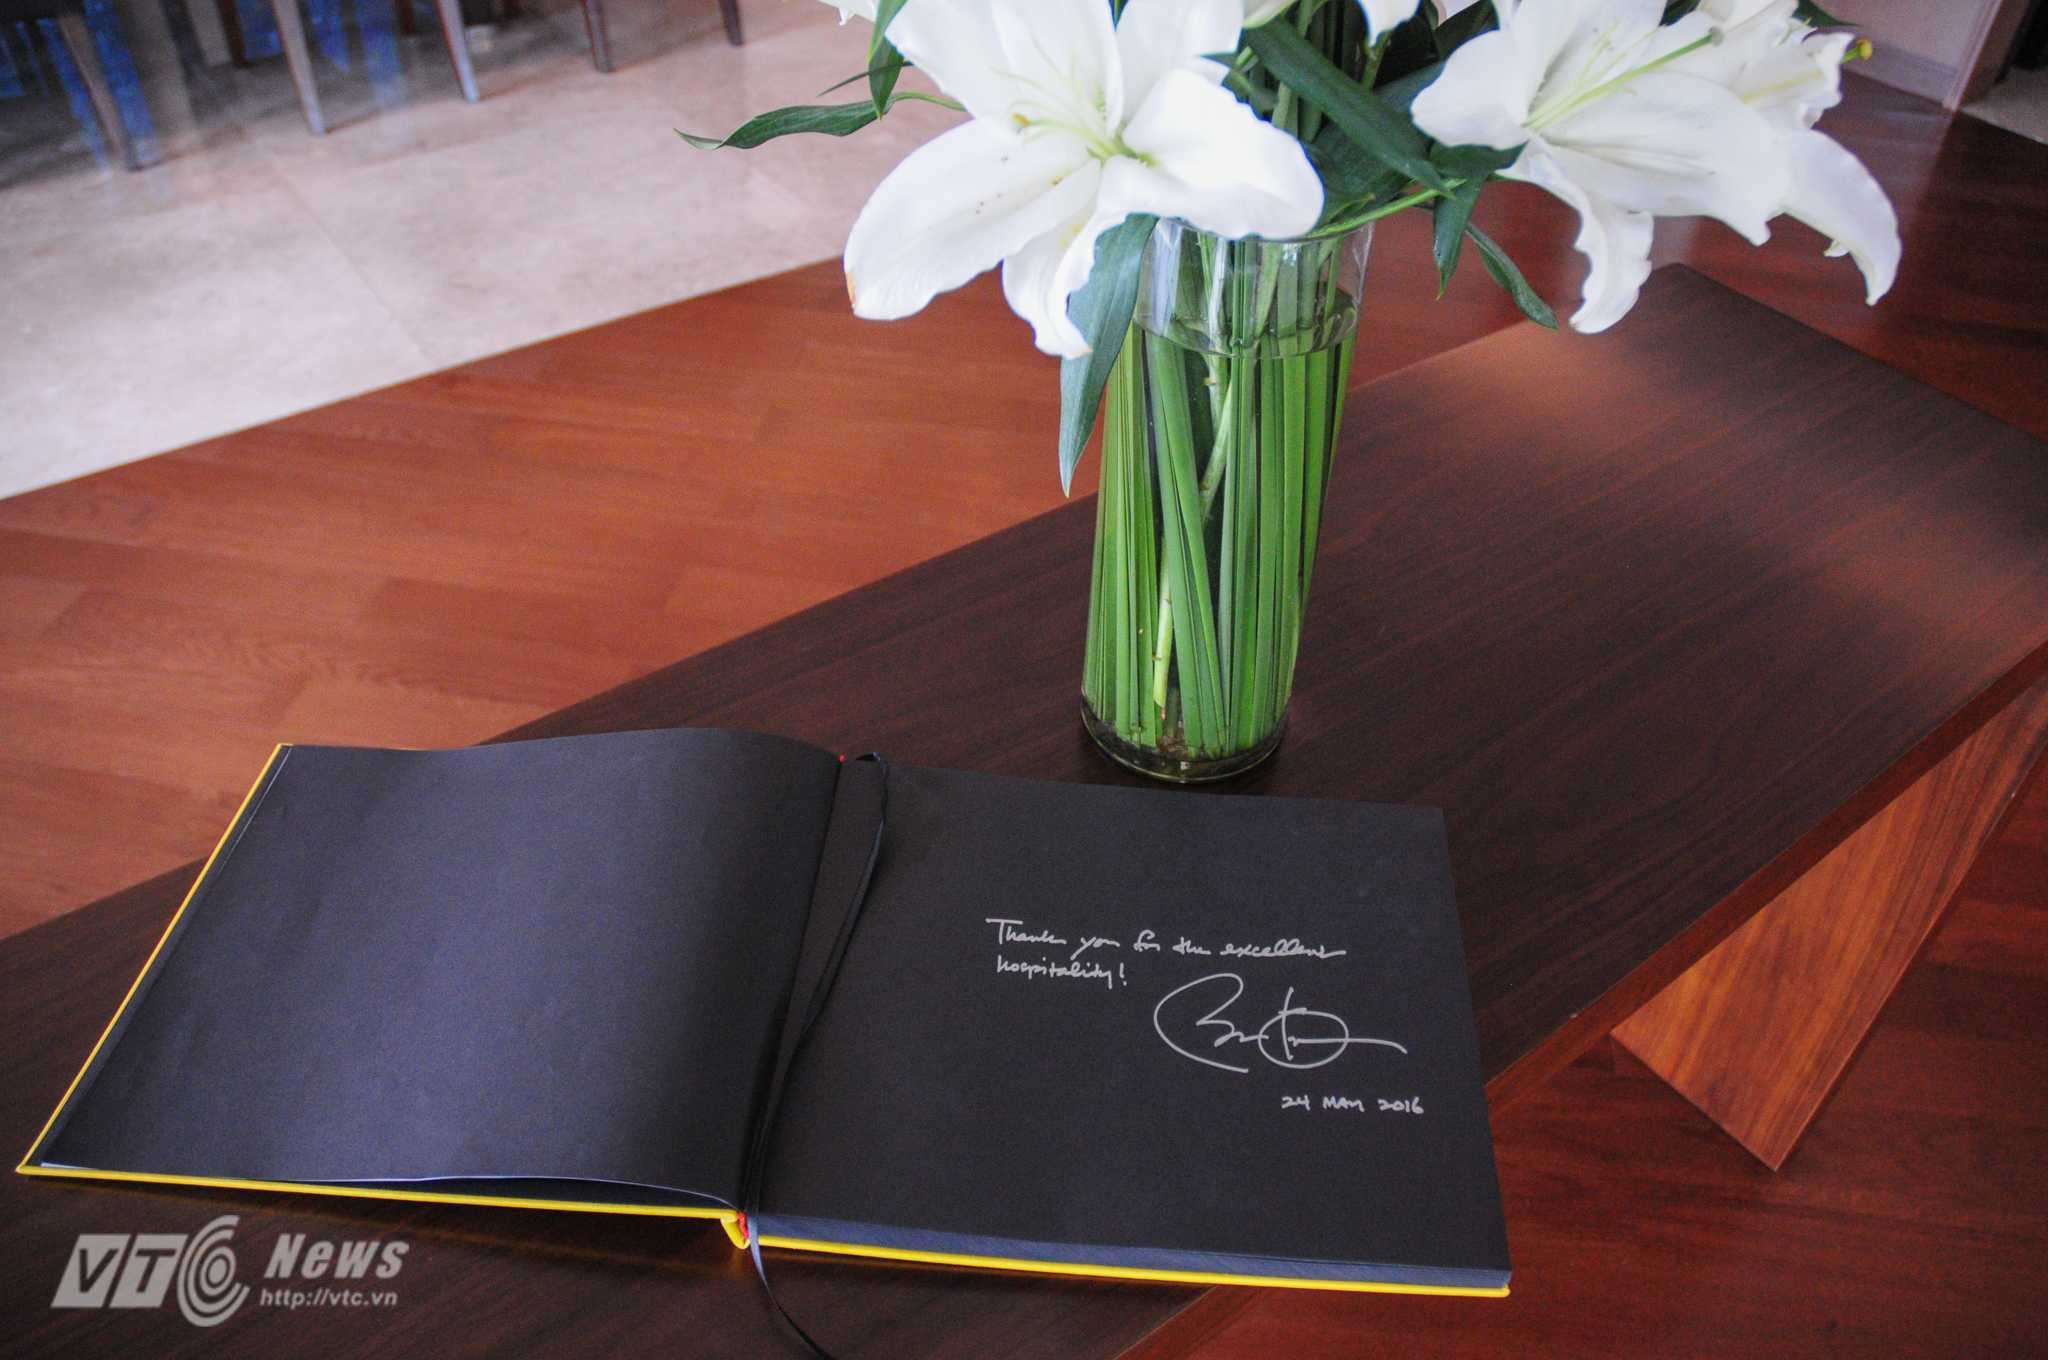 Thank you for the excellent
hospitality!
24 MAY 2016
VTC News
http://vtc.vn